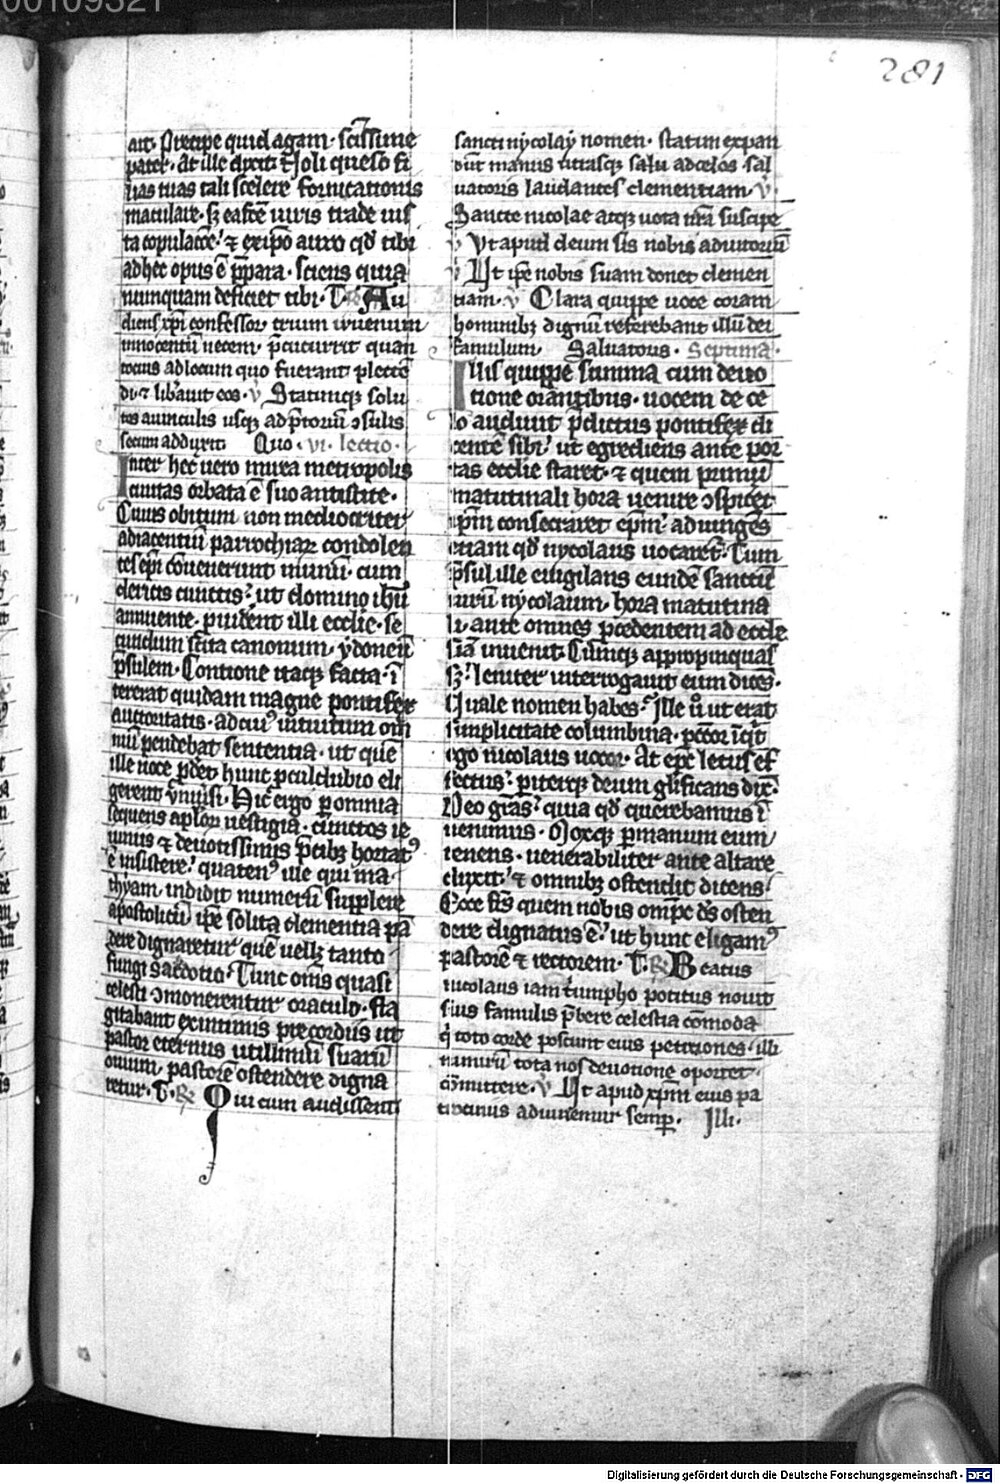 00109321
281
ait. Precipe quid agam. sc̄issime
pater. At ille dixit. Noli queso fi
lias tuas tali scelere fornicationis
maculare. sꝫ eas cē uiris trade iuſ
ta copulac̄oe. ⁊ ex ip̄o auro qd̄ tibi
ad hec opus ē p̄para. sciens quia
nunquam deficiet tibi. T. ℟ Au
diens xp̄i confessor trium iuuenum
innocentū necem. p̄cucurrit quan
tocius ad locum quo fuerant plecte͞
di. ⁊ lib̄auit eos. V̄ Statimqꝫ solu
tos uinculis usqꝫ ad p̄toriū ↄsulis
secum adduxit. Quo. vi. lectio.
Inter hec uero mirea metropolis
ciuitas orbata ē suo antistite.
Cuius obitum non mediocriter
adiacentiū parrochiaꝝ condolen
tes ep̄i conuenerunt in unū. cum
clericis cunctis. ut domino ihū
annuente. p̄uident illi ecclie. se
cundum sc̄ita canonum. ydoneū
p̄sulem. Contione itaqꝫ facta. ī
tererat quidam magne pontifex
auctoritatis. ad cuiꝰ intuitum om
niū pendebat sententia. ut que͞
ille uoce p̄det hunc p̄culdubio eli
gerent vniūsi. Hic ergo p̄ omnia
sequens apl̄oꝝ uestigia. cunctos ie
iuniis ⁊ deuotissimis p̄cibꝫ hortatꝰ
ē insistere. quatenꝰ ille qui ma
thyam indidit numerū supplere
apostolicū. ip̄e solita clementia pā
dere dignaretur. quē uellꝫ tanto
fungi sac̄dotio. Tunc om̄s quasi
celesti ↄmonerentur oraculo. fla
gitabant ex intimis precordiis ut
pastor eternus utillimū suarū
ouium. pastorē ostendere digna
retur. T. ℟ Qui cum audissent
sancti nycolay nomen. statim expan
dūt manus utrasqꝫ saluad celos. sal
uatoris laudantes clementiam. V̄.
Sancte nicolae atqꝫ uota nr̄a suscipe
V̄ Vt apud deum sis nobis adiutoriū
V̄ Ut ip̄e nobis suam donet clemen
tiam. V̄ Clara quippe uoce coram
hominibꝫ dignū referebant illū dei
famulum. Saluatoris. Septima.
Illis quippe summa cum deuo
tione orantibus. uocem de ce
lo audiuit p̄dictus pontifex di
centē sibi. ut egrediens ante por
tas ecclie staret. ⁊ quem primū
matutinali hora uenire ↄspicet
ip̄m consecraret ep̄m. adiunges
etiam qd̄ nycolaus uocaret. Tum
p̄sul ille euigilans eundē sanctū
uirū nycolaum. hora matutina
li. ante omnes p̄cedentem ad eccle
siā inuenit. Cūmqꝫ appropinquas
sꝫ. leniter interrogauit eum dicēs.
Quale nomen habes. Ille u͛o ut erat
simplicitate columbina. pc̄cor īq̄t
ego nicolaus uocor. At ep̄c letus ef
fectus. pariterqꝫ deum gl̄ificans dix̄.
Deo gr̄as. quia qd̄ querebamus ī
uenimus. Moxqꝫ p̄ manum eum
tenens. uenerabiliter ante altare
duxit. ⁊ omnibꝫ ostendit dicens.
Ecce fr̄s quem nobis omp̄c ds̄ osten
dere dignatus ē. ut hunc eligamꝰ
pastorē ⁊ rectorem. T. ℟ Beatus
nicolaus iam triumpho potitus nouit
suis famulis p̄bere celestia cōmoda
q̄ toto corde poscunt eius petitiones. illi
nimirū tota nos deuotione oportet
cōmittere. V̄ Ut apud xp̄m eius pa
trocinus adiuuemur semꝑ. Illi.
Digitalisierung gefördert durch die Deutsche Forschungsgemeinschaft - DFG